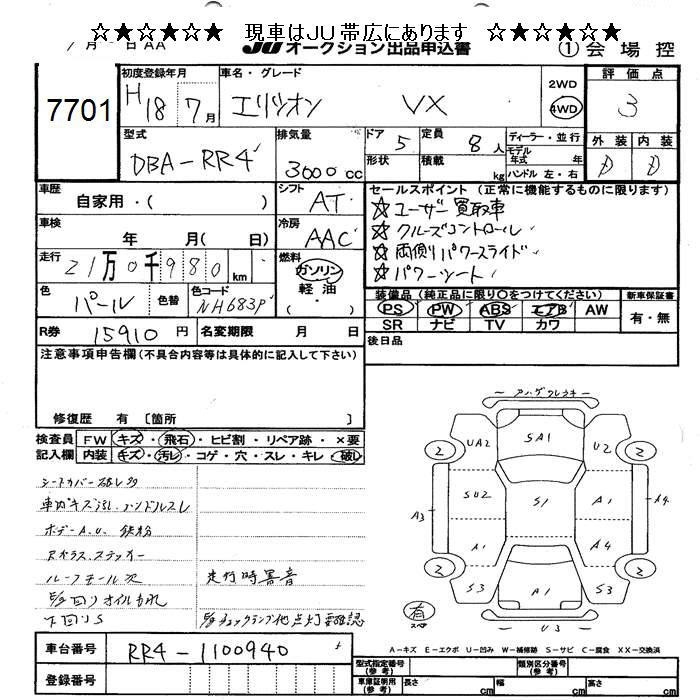 ☆★☆★☆★ 現車はJU帯広にあります ☆★☆★☆★
月 日 AA JU オークション出品申込書 ① 会場控
7701
初度登録年月 H18年7月
車名・グレード エリシオン VX
2WD 4WD
評価点 3
外装 D 内装 D
型式 DBA-RR4
排気量 3000cc
ドア 5 形状
定員 8人 積載 kg
ディーラー・並行
モデル年式 年
ハンドル 左・右
車歴 自家用・( )
シフト AT
車検 年 月( 日)
冷房 AAC
走行 21万0千980km
燃料 ガソリン 軽油 ( ・ )
色 パール 色替
色コード NH683P
R券 15910円 名変期限 月 日
セールスポイント (正常に機能するものに限ります)
☆ユーザー買取車
☆クルーズコントロール
☆両側パワースライド
☆パワーシート
装備品 (純正品に限り〇をつけてください) 新車保証書
PS PW ABS エアB AW 有・無
SR ナビ TV カワ
後日品
注意事項申告欄 (不具合内容等は具体的に記入して下さい)
修復歴 有 〔箇所 〕
検査員 FW キズ・飛石・ヒビ割・リペア跡・×要
記入欄 内装 キズ・汚レ・コゲ・穴・スレ・キレ・破レ
シートカバー破レ多
車内キズ汚レ.ハンドルスレ
ボデーA.U. 鉄粉
Rガラス.ステッカー
ルーフモール欠
走行時異音
下回りS
車台番号 RR4-1100940
登録番号
UA2 SA1 U2
2 2
SU2 S1 A1
A3 A4
A1 A4
2 2
S3 A1 S3
U3
有 スペア
A-キズ E-エクボ U-凹み W-補修跡 S-サビ C-腐食 XX-交換済
型式指定番号(参考) 類別区分番号(参考)
車庫証明用(参考) 長さ cm 幅 cm 高さ cm